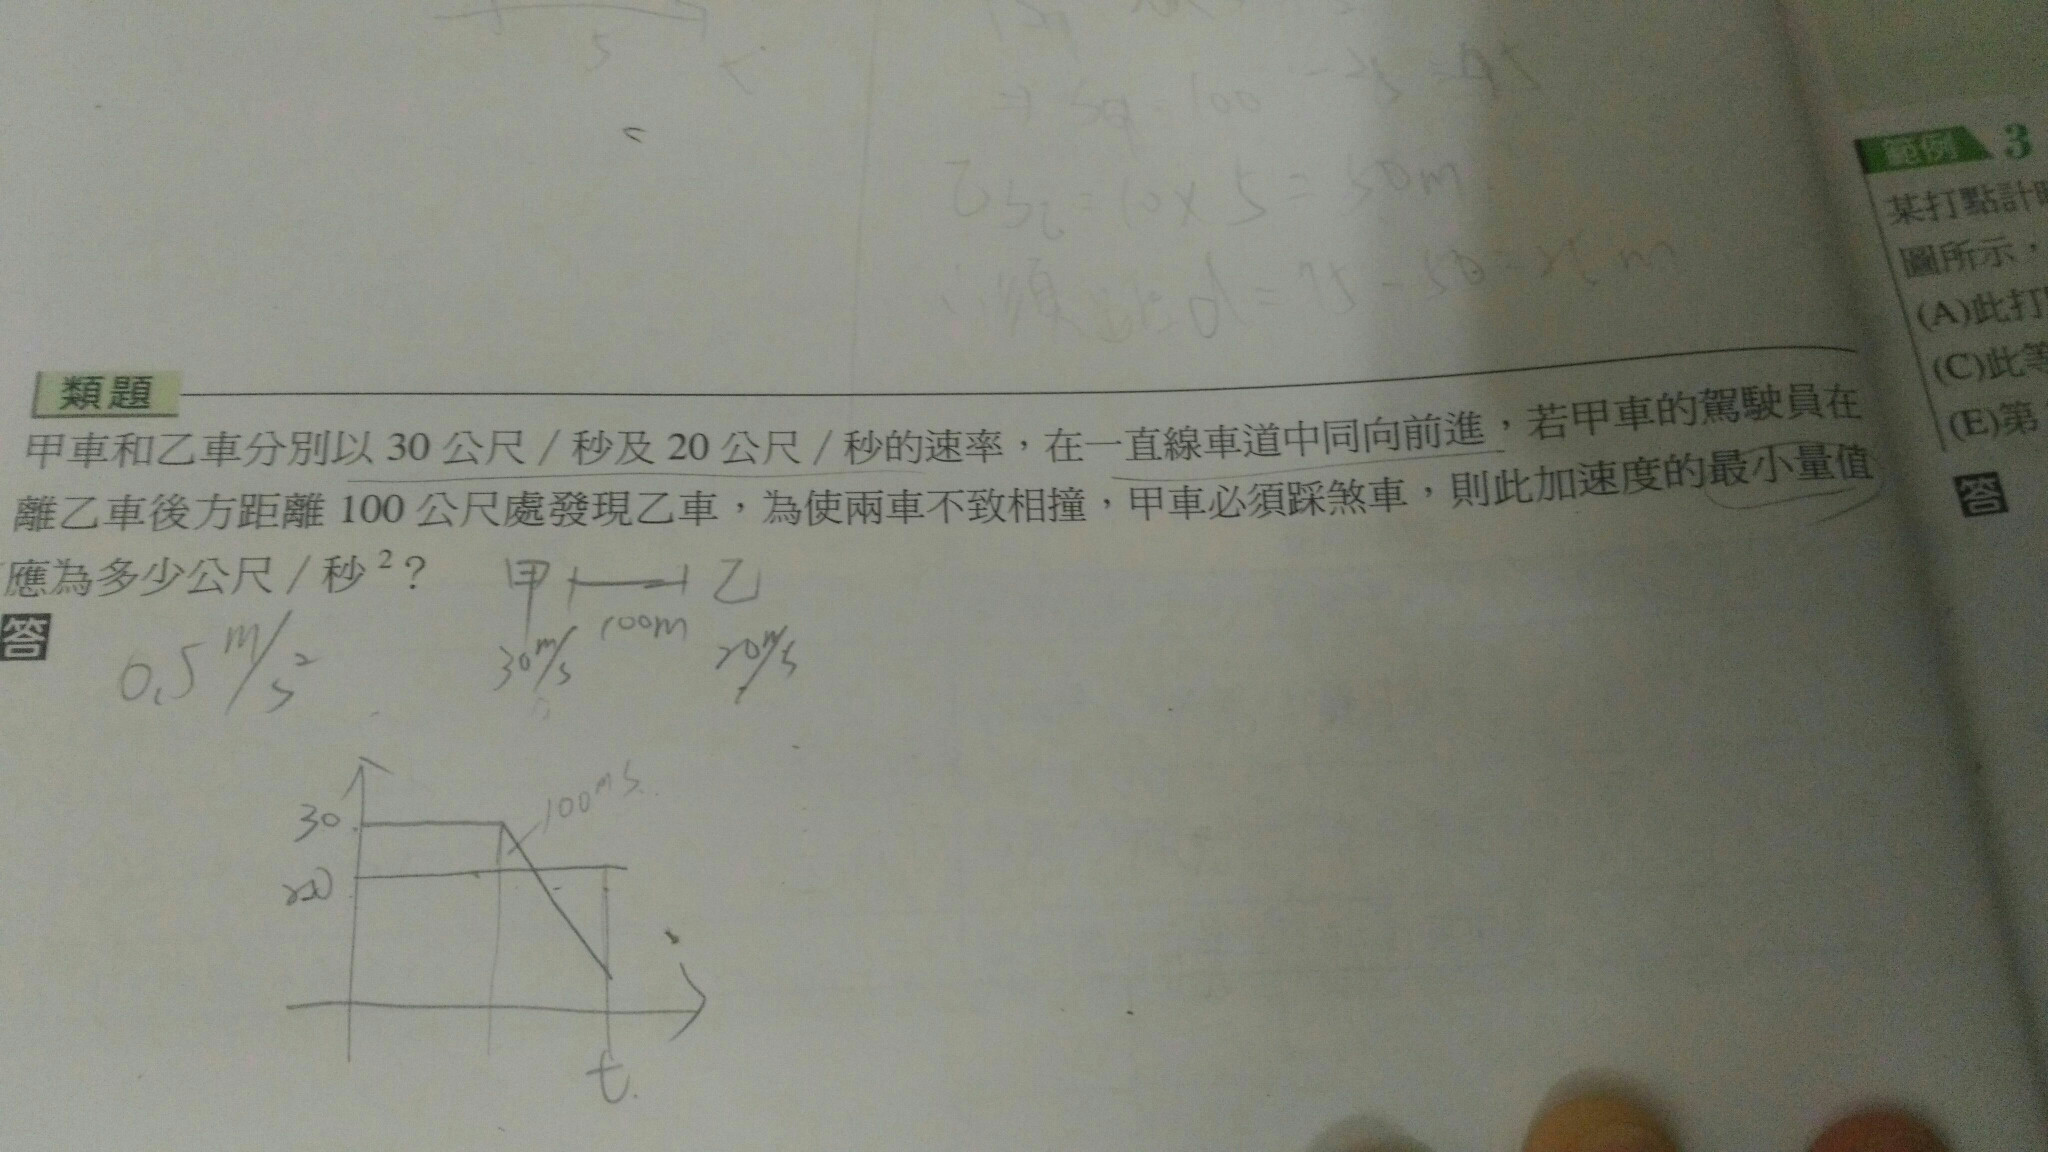 5
t
⇒ S甲 = 100 - 25 = 75
乙 S乙 = 10 × 5 = 50m
d = 75 - 50 = 25 m
類題
甲車和乙車分別以 30 公尺／秒及 20 公尺／秒的速率，在一直線車道中同向前進，若甲車的駕駛員在
離乙車後方距離 100 公尺處發現乙車，為使兩車不致相撞，甲車必須踩煞車，則此加速度的最小量值
應為多少公尺／秒²？
甲 乙
100m
30m/s 20m/s
答
0.5 m/s²
100m
30
20
t
範例 3
某打點計
圖所示，
(A)此打
(C)此等
(E)第
答